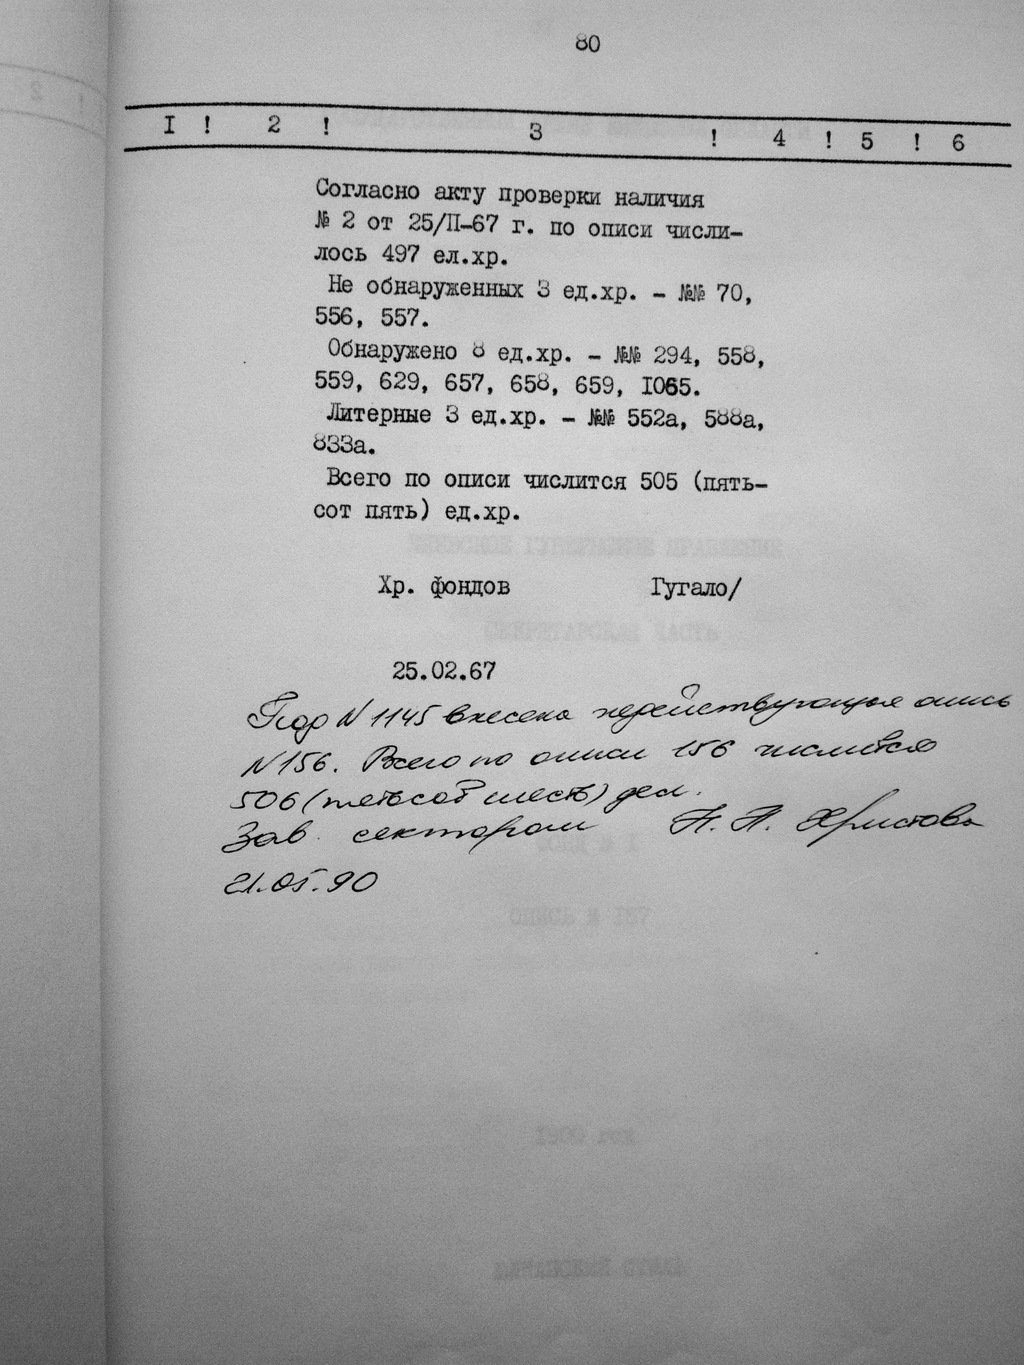 80
I ! 2 ! 3 ! 4 ! 5 ! 6
Согласно акту проверки наличия
№ 2 от 25/П-67 г. по описи числи-
лось 497 ел.хр.
Не обнаруженных 3 ед.хр. - №№ 70,
556, 557.
Обнаружено 8 ед.хр. - №№ 294, 558,
559, 629, 657, 658, 659, I065.
Литерные 3 ед.хр. - №№ 552а, 588а,
833а.
Всего по описи числится 505 (пять-
сот пять) ед.хр.
Хр. фондов Гугало/
25.02.67
Под N 1145 внесена недействующая опись
N 156. Всего по описи 156 числится
506 (пятьсот шесть) дел.
Зав. сектором Н. П. Христова
21.05.90